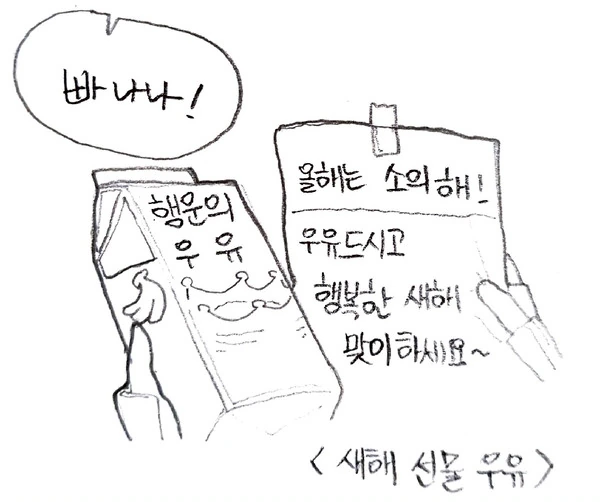 빠나나!
행운의
우유
올해는 소의해!
우유드시고
행복한 새해
맞이하세요~
<새해 선물 우유>